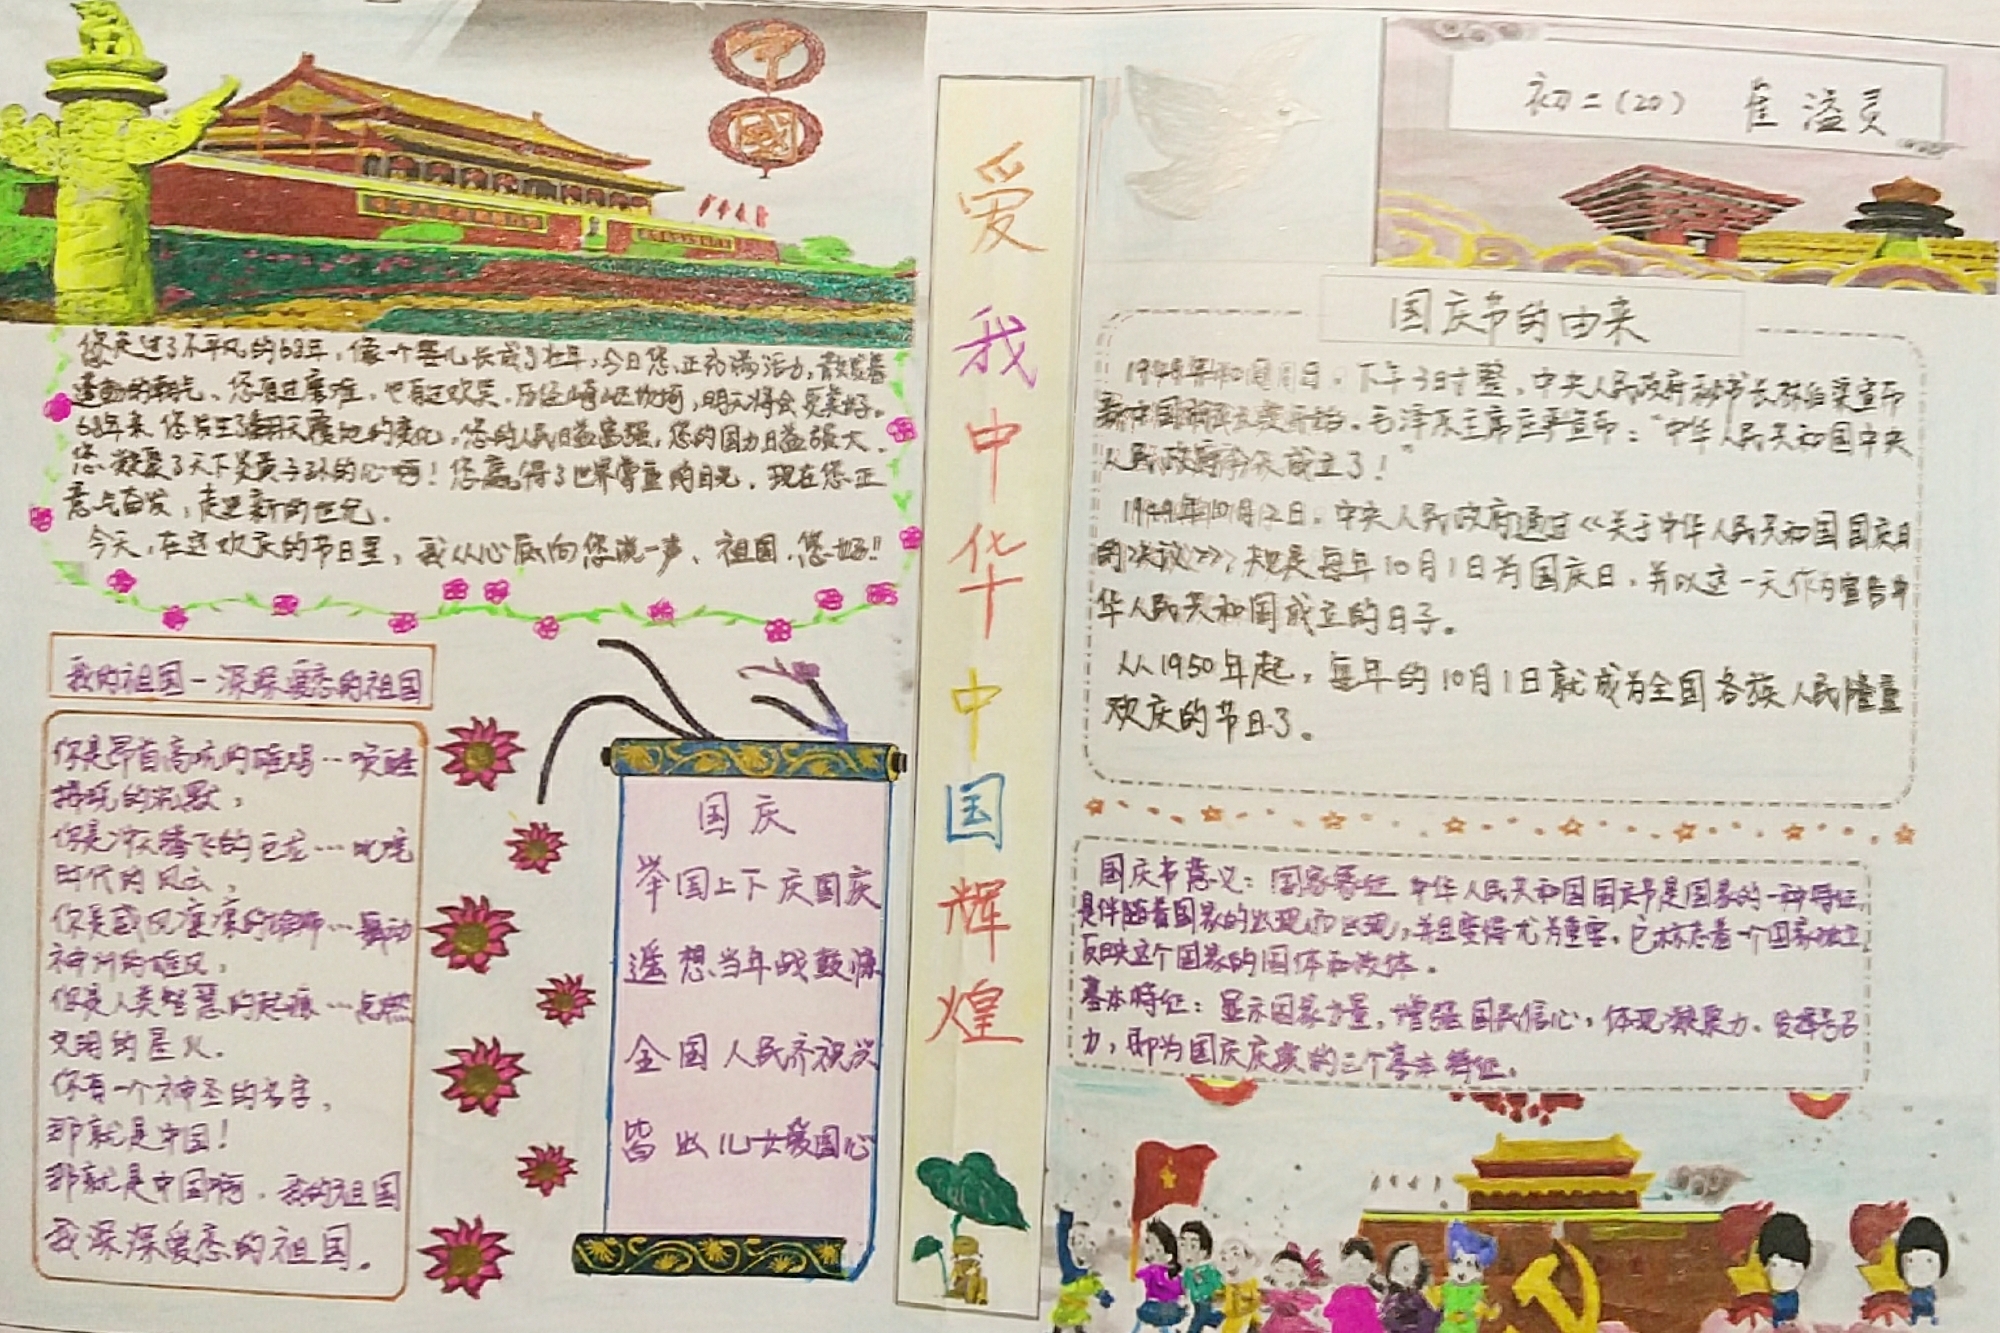 中
國
您走过了不平凡的68年，像一个婴儿长成了壮年，今日您正充满活力，散发着
蓬勃的朝气、您有过磨难，也有过欢笑，历经崎岖坎坷，明天将会更美好。
68年来您发生了翻天覆地的变化，您的人民日益富强，您的国力日益强大、
您凝聚了天下炎黄子孙的心啊！您赢得了世界尊重的目光，现在您正
意气奋发，走进新的世纪．
今天，在这欢庆的节日里，我从心底向您说一声、祖国，您好!!
我的祖国一深深爱恋的祖国
你是昂首高吭的雄鸡…唤醒
拂晓的沉默，
你是冲天腾飞的巨龙…叱咤
时代的风云，
你是威风凛凛的雄狮…舞动
神州的雄风，
你是人类智慧的起源…点燃
文明的星火．
你有一个神圣的名字，
那就是中国！
那就是中国啊．我的祖国
我深深爱恋的祖国．
国庆
举国上下庆国庆
遥想当年战鼓
全国人民齐祝兴
皆出儿女爱国心
爱我中华中国辉煌
初二（20） 崔溢灵
国庆节的由来
1949年10月1日，下午3时整，中央人民政府秘书长林伯渠宣布
毛泽东主席庄严宣布：“中华人民共和国中央
人民政府今天成立了！”
1949年10月12日，中央人民政府通过《关于中华人民共和国国庆日
的决议》，规是每年10月1日为国庆日，并以这一天作为宣告中
华人民共和国成立的日子。
从1950年起，每年的10月1日就成为全国各族人民隆重
欢庆的节日了。
国庆节意义：国家象征 中华人民共和国国庆节是国家的一种特征，
是伴随着国家的出现而出现，并且变得尤为重要，它标志着一个国家独立
反映这个国家的国体和政体．
基本特征：显示国家力量，增强国民信心，体现凝聚力、发挥号召
力，即为国庆庆典的三个基本特征．